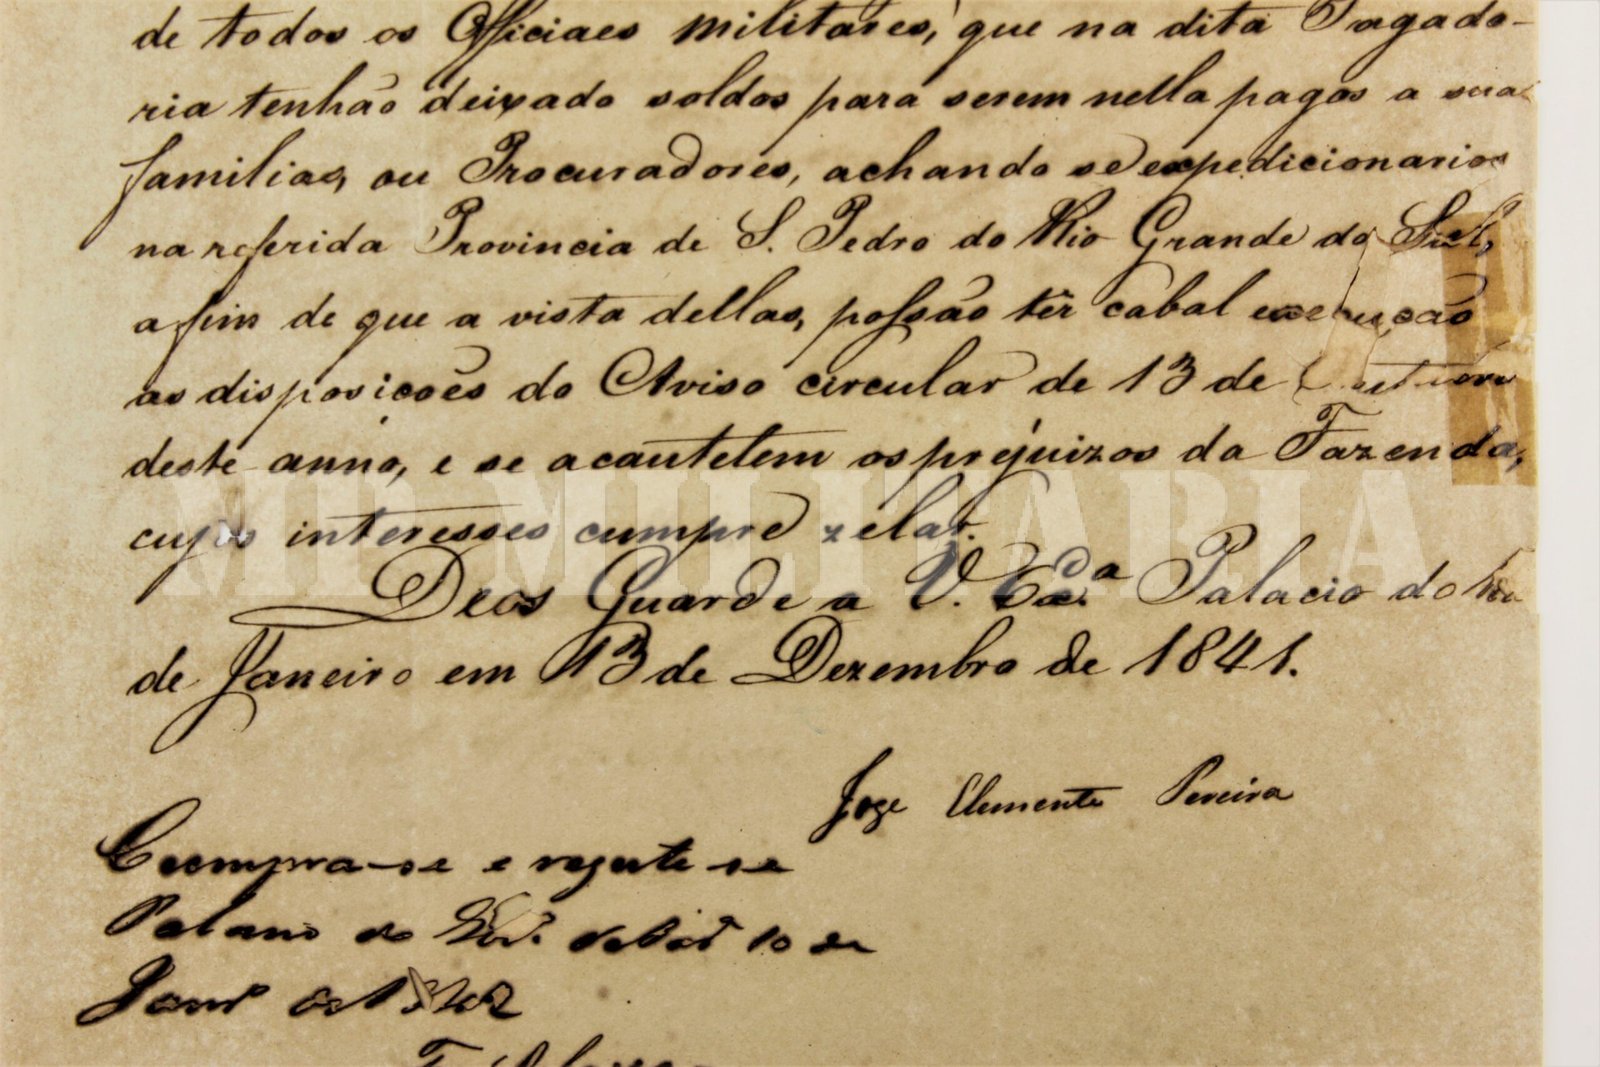 de todos os Officiaes militares, que na dita Pagado-
ria tenhão deixado soldos para serem nella pagos a suas
familias, ou Procuradores, achando se expedicionarios
na referida Provincia de S. Pedro do Rio Grande do Sul,
a fim de que a vista dellas, possão têr cabal execução
as disposicoẽs do Aviso circular de 13 de
deste anno, e se acautelem os prejuizos da Fazenda,
cujos interesses cumpre zelar.
MP MILITARIA
Deos Guarde a V. Exa. Palacio do Rio
de Janeiro em 13 de Dezembro de 1841.
Joze Clemente Pereira
Cumpra-se e registe-se
Palacio do 10 de
Janro de 1842